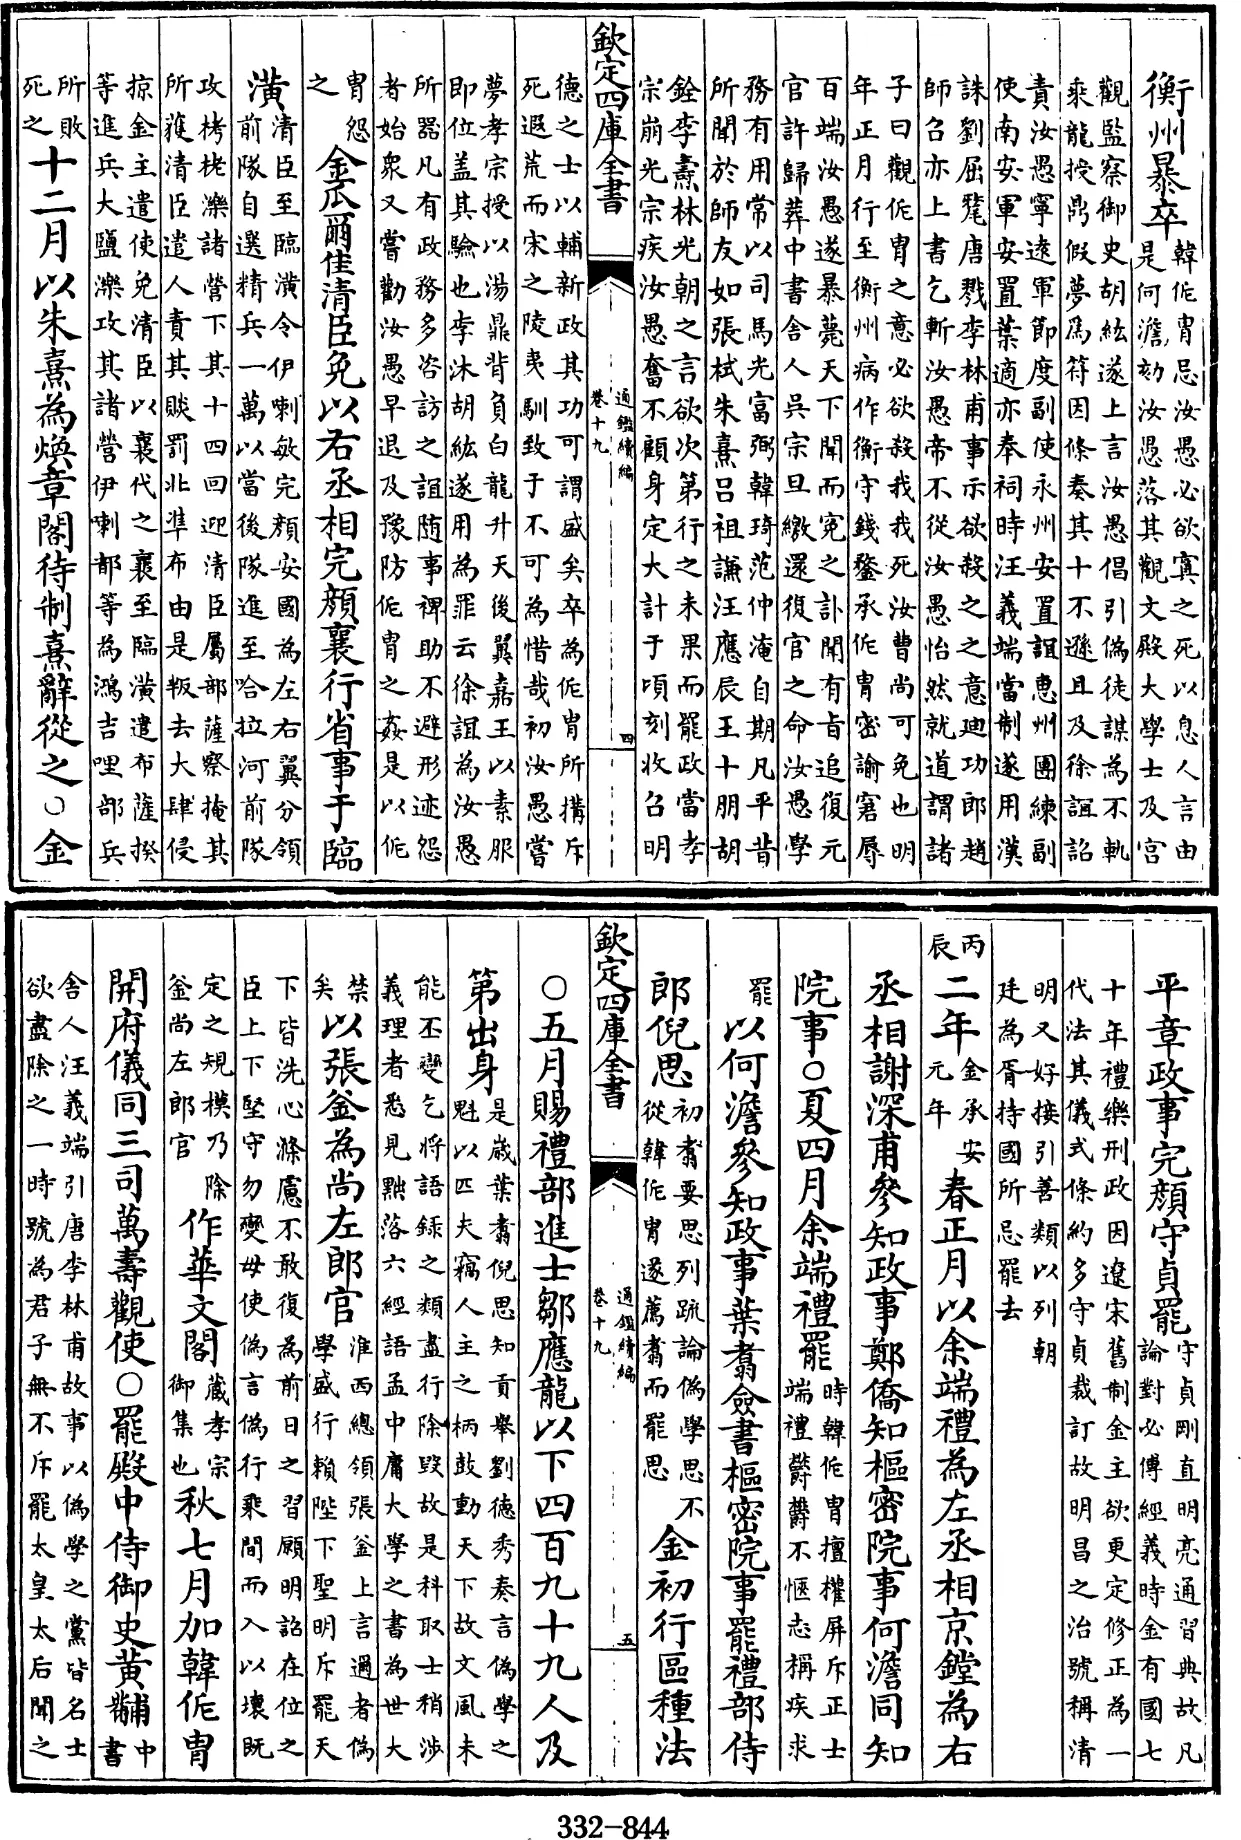 衡州暴卒
韓侂胄忌汝愚必欲寘之死以息人言由
是何澹劾汝愚落其觀文殿大學士及宮
觀監察御史胡紘遂上言汝愚倡引偽徒謀為不軌
乘龍授鼎假夢爲符因條奏其十不遜且及徐誼詔
責汝愚寧遠軍節度副使永州安置誼惠州團練副
使南安軍安置葉適亦奉祠時汪義端當制遂用漢
誅劉屈氂唐戮李林甫事示欲殺之之意廸功郎趙
師召亦上書乞斬汝愚帝不從汝愚怡然就道謂諸
子曰觀侂胄之意必欲殺我我死汝曹尚可免也明
年正月行至衡州病作衡守錢鍪承侂胄密諭窘辱
百端汝愚遂暴薨天下聞而寃之訃聞有旨追復元
官許歸葬中書舍人吳宗旦繳還復官之命汝愚學
務有用常以司馬光富弼韓琦范仲淹自期凡平昔
所聞於師友如張栻朱熹呂祖謙汪應辰王十朋胡
銓李燾林光朝之言欲次第行之未果而罷政當孝
宗崩光宗疾汝愚奮不顧身定大計于頃刻收召明
欽定四庫全書
通鑑續編
卷十九
四
德之士以輔新政其功可謂盛矣卒為侂胄所搆斥
死遐荒而宋之陵夷馴致于不可為惜哉初汝愚嘗
夢孝宗授以湯鼎背負白龍升天後翼嘉王以素服
即位盖其驗也李沐胡紘遂用為罪云徐誼為汝愚
所器凡有政務多咨訪之誼随事裨助不避形迹怨
者始衆又嘗勸汝愚早退及豫防侂胄之姦是以侂
胄怨
之
金爪爾佳清臣免以右丞相完顔襄行省事于臨
潢
清臣至臨潢令伊喇敏完顔安國為左右翼分領
前隊自選精兵一萬以當後隊進至哈拉河前隊
攻栲栳濼諸營下其十四回迎清臣屬部薩察掩其
所獲清臣遣人責其賧罰北準布由是叛去大肆侵
掠金主遣使免清臣以襄代之襄至臨潢遣布薩揆
等進兵大鹽濼攻其諸營伊喇都等為鴻吉哩部兵
所敗
死之
十二月以朱熹為煥章閣待制熹辭從之〇金
平章政事完顔守貞罷
守貞剛直明亮通習典故凡
論對必傅經義時金有國七
十年禮樂刑政因遼宋舊制金主欲更定修正為一
代法其儀式條約多守貞裁訂故明昌之治號稱清
明又好接引善類以列朝
廷為胥持國所忌罷去
丙
辰
二年
金承安
元年
春正月以余端禮為左丞相京鏜為右
丞相謝深甫參知政事鄭僑知樞密院事何澹同知
院事〇夏四月余端禮罷
時韓侂胄擅權屏斥正士
端禮鬱鬱不愜志稱疾求
罷
以何澹參知政事葉翥僉書樞密院事罷禮部侍
郎倪思
初翥要思列疏論偽學思不
從韓侂胄遂薦翥而罷思
金初行區種法
欽定四庫全書
通鑑續編
卷十九
五
〇五月賜禮部進士鄒應龍以下四百九十九人及
第出身
是歲葉翥倪思知貢舉劉德秀奏言偽學之
魁以匹夫竊人主之柄鼓動天下故文風未
能丕變乞將語録之類盡行除毀故是科取士稍涉
義理者悉見黜落六經語孟中庸大學之書為世大
禁
矣
以張釜為尚左郎官
淮西總領張釜上言邇者偽
學盛行賴陛下聖明斥罷天
下皆洗心滌慮不敢復為前日之習願明詔在位之
臣上下堅守勿變毋使偽言偽行乘間而入以壞既
定之規模乃除
釜尚左郎官
作華文閣
藏孝宗
御集也
秋七月加韓侂胄
開府儀同三司萬壽觀使〇罷殿中侍御史黃黼
中
書
舍人汪義端引唐李林甫故事以偽學之黨皆名士
欲盡除之一時號為君子無不斥罷太皇太后聞之
332-844